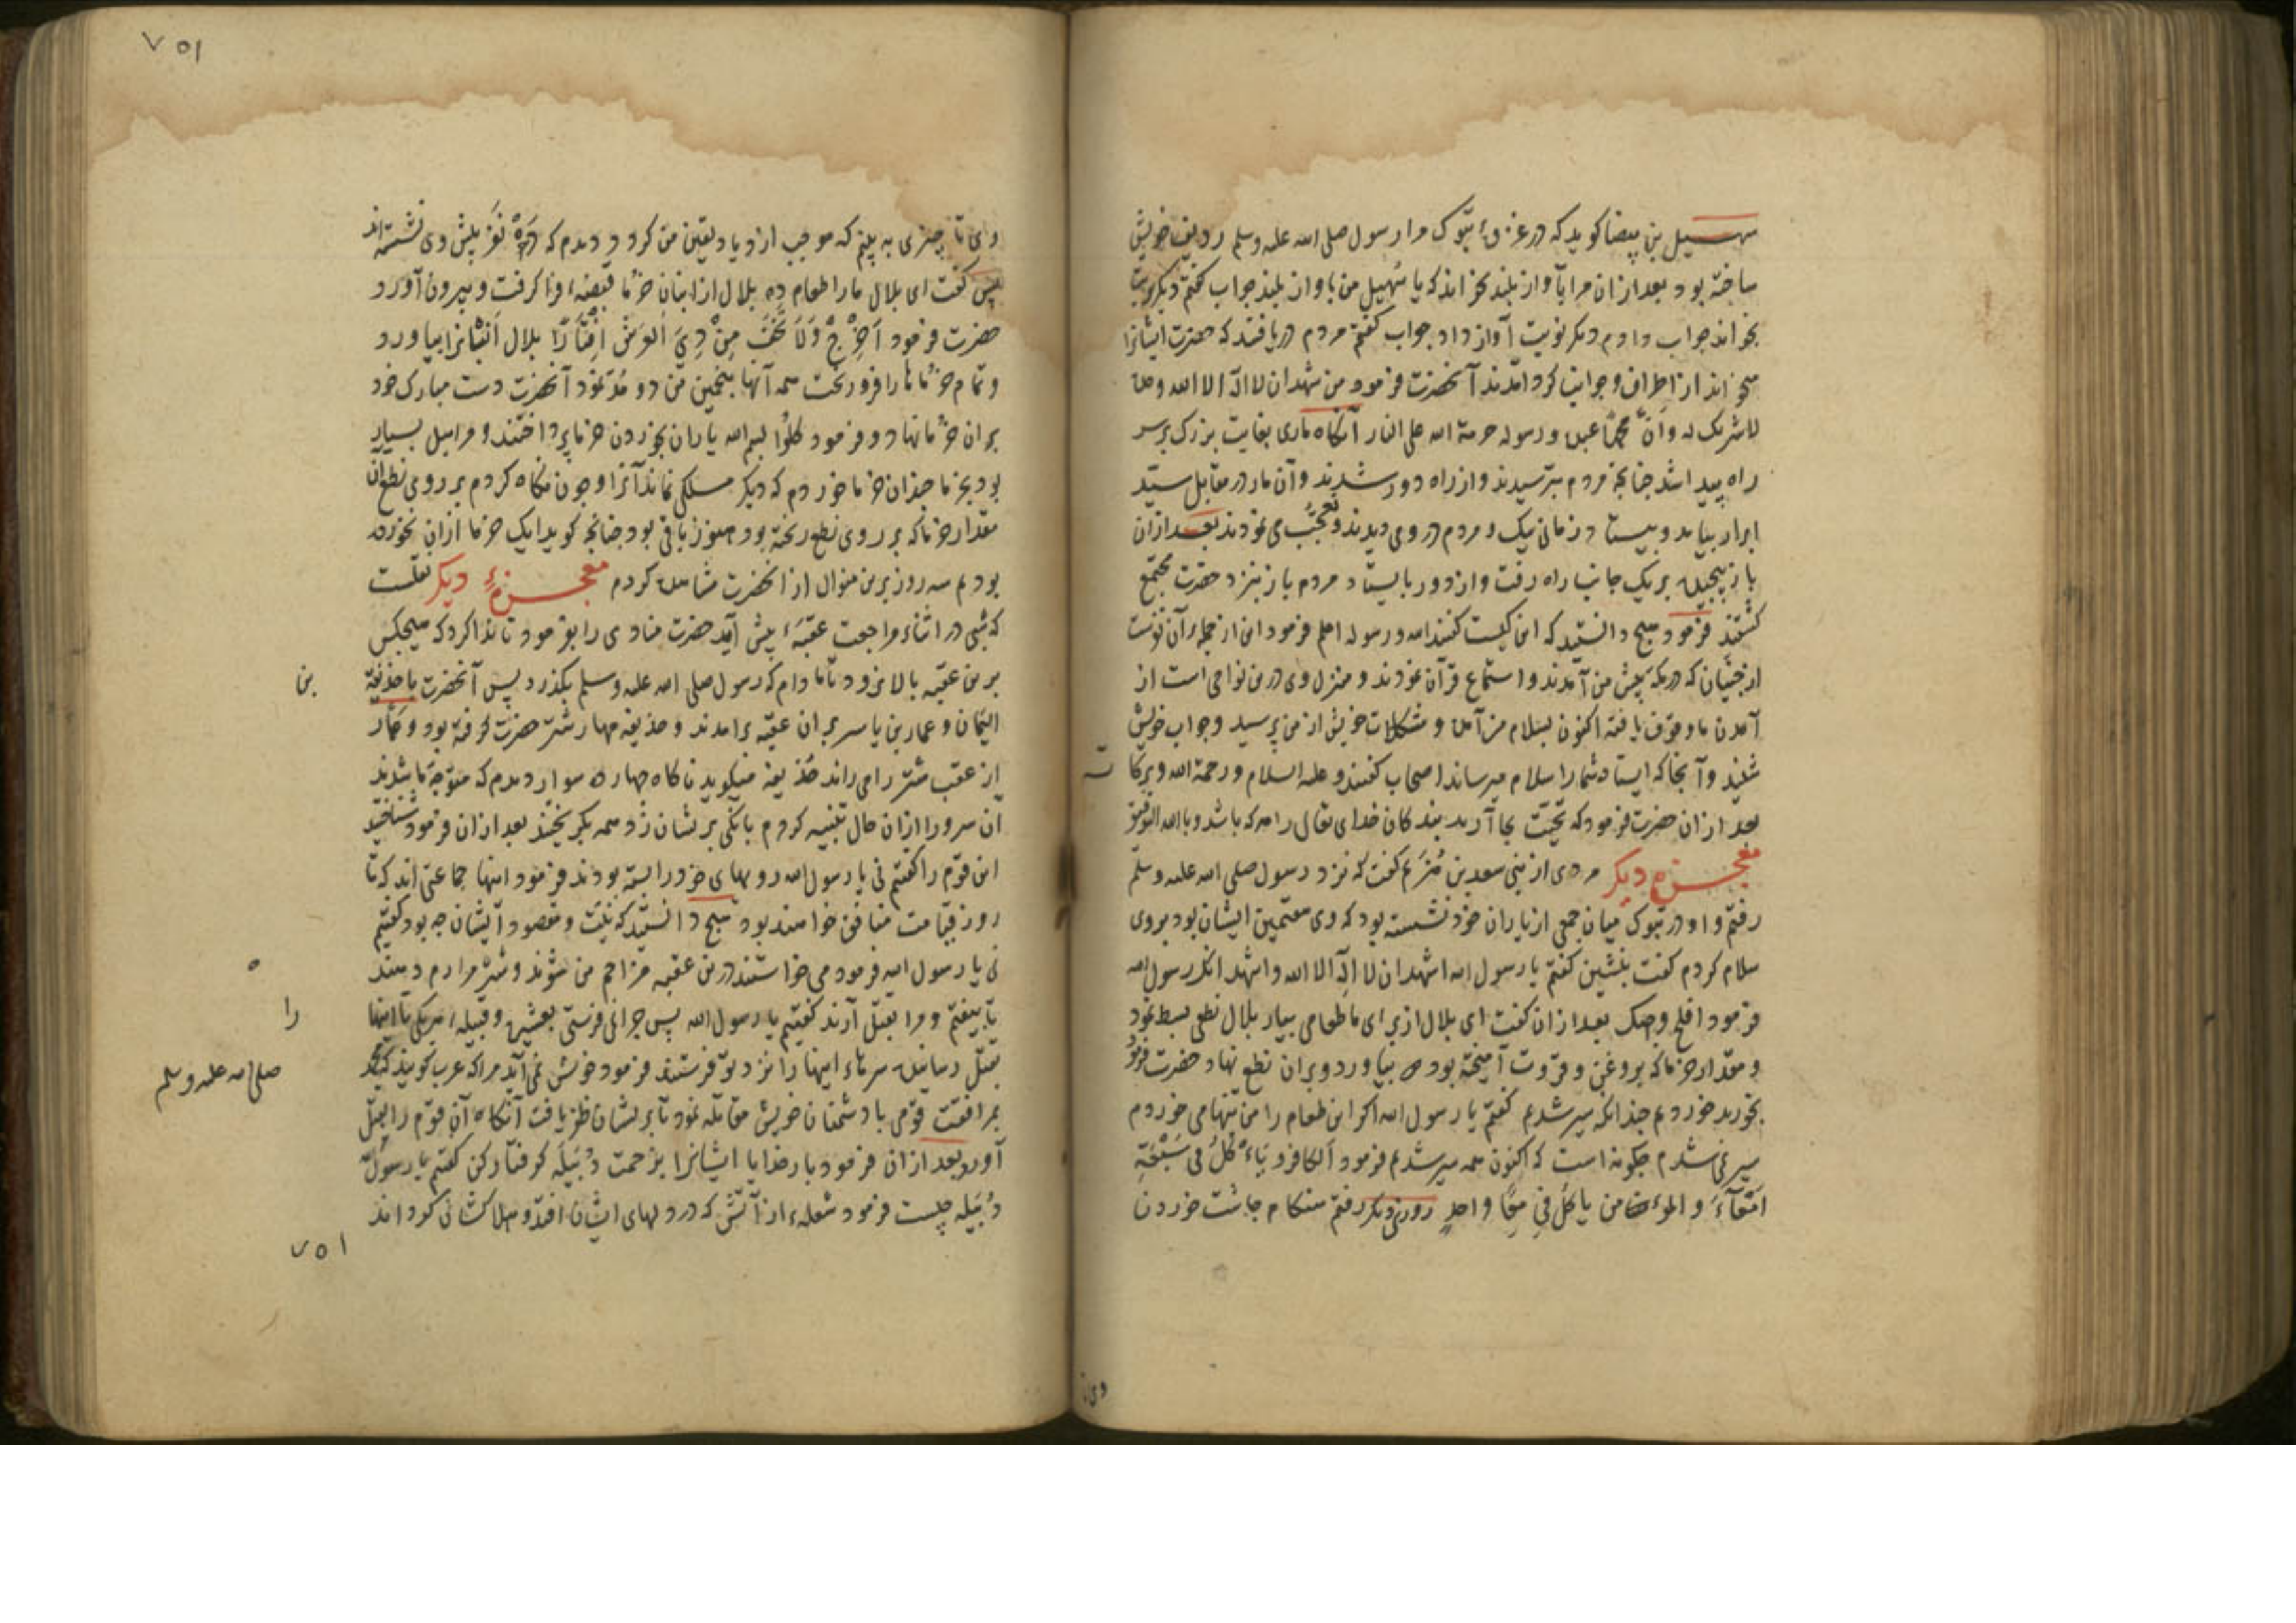 سهیل بن بیضا کوید که در غزوهٔ تبوک مرا رسول صلی الله علیه وسلم ردیف خویش
ساخته بود بعد ازان مرا بآواز بلند بخواند که یا سُهیل من بآواز بلند جواب کفتم دیکر
بخواند جواب دادم دیکر نوبت آواز داد جواب کفتم مردم دریافتند که حضرت ایشانرا
میخواند از اطراف وجوانب کرد آمدند آنحضرت فرمود من شهد ان لا اله الا الله وحده
لا شریک له وانّ محمّداً عبده ورسوله حرمه الله علی النار آنکاه ماری بغایت بزرک بر سر
راه پیدا شد چنانچه مردم بترسیدند واز راه دور شدند وآن مار در مقابل سیّد
ابرار بیامد وبیستاد زمانی نیک ومردم در وی دیدند وتعجّب می نمودند بعد ازان
باز پیچیده بر یک جانب راه رفت واز دور بایستاد مردم باز بنزد حضرت مجتمع
کشتند فرمود هیچ دانستید که این کیست کفتند الله ورسوله اعلم فرمود این از جمله آن
از جنّیان که در مکّه پیش من آمدند واستماع قرآن نمودند ومنزل وی درین نواحی است از
آمدن ما وقوف یافته اکنون بسلام من آمده ومشکلات خویش از من پرسید وجواب خویش
شنید وآنجا که ایستاده شما را سلام میرساند اصحاب کفتند وعلیه السلام ورحمة الله وبرکا
ته
بعد ازان حضرت فرمود که تحیّت بجا آرید بندکان خدای تعالی را هر که باشد وبالله التوفیق
معجزه دیکر مردی از بنی سعد بن کفت که نزد رسول صلی الله علیه وسلم
رفتم واو در تبوک میان جمعی از یاران خود نشسته بود که وی هفتمین ایشان بود بروی
سلام کردم کفت بنشین کفتم یا رسول الله اشهد ان لا الٰه الا الله واشهد انک رسول الله
فرمود افلح وجهک بعد ازان کفت ای بلال از برای ما طعامی بیار بلال نطعی بسط نمود
ومقدار خرما که بروغن وقروت آمیخته بود بیاورد وبران نطع نهاد حضرت فرمود
بخورید خوردیم چندانکه سیر شدیم کفتم یا رسول الله اکر این طعام را من تنها می خوردم
سیر نمی شدم چکونه است که اکنون همه سیر شدیم فرمود الکافر یأکل فی سبعة
امعآء والمؤمن یاکل فی معًا واحدٍ روزی دیکر رفتم هنکام چاشت خوردن
وی تا
۷۵۱
وی تا چیزی به بینم که موجب ازدیاد یقین من کردد دیدم که ده نفر پیش وی نشسته اند
پس کفت ای بلال ما را طعام ده بلال از انبان خرما قبضهٔ فرا کرفت وبیرون آورد
حضرت فرمود اَخرِج ولا تخف من ذی العرش اقتارًا بلال انبانرا بیاورد
وتمام خرماها را فرو ریخت همه آنها بتخمین من دو مُد نمود آنحضرت دست مبارک خود
بران خرما نهاد وفرمود کلوا بسم الله یاران بخوردن خرما پرداختند ومرا میل بسیار
بود بخرما چندان خرما خوردم که دیکر مسلکی نماند آنرا وچون نکاه کردم بر روی نطع آن
مقدار خرما که بر روی نطع ریخته بود هنوز باقی بود چنانچه کویا یک خرما ازان نخورده
بودیم سه روز برین منوال از آنحضرت مشاهده کردم معجزهٔ دیکر نقلست
که شبی در اثناء مراجعت عقبهٔ پیش آمد حضرت منادی را بفرمود تا ندا کرد که هیچکس
برین عقبه بالا نرود تا مادام که رسول صلی الله علیه وسلم بکذرد پس آنحضرت با حذیفة
بن
الیمان وعمار بن یاسر بران عقبه برآمدند وحذیفه مهار شتر حضرت کرفته بود وعمّار
از عقب شتر را می راند حُذیفه میکوید ناکاه چهارده سوار دیدم که متوجّه ما شدند
آن سرور را ازان حال تنبیه کردم بانکی بر ایشان زد همه بکریختند بعد ازان فرمود شناختید
این قوم را کفتم نی یا رسول الله رویهای خود را بسته بودند فرمود اینها جماعتی اند که تا
روز قیامت منافق خواهند بود هیچ دانستید که نیّت ومقصود ایشان چه بود کفتیم
نی یا رسول الله فرمود می خواستند درین عقبه مزاحم من شوند وشتر مرا رم دهند
ه
تا بیفتم ومرا بقتل آرند کفتیم یا رسول الله پس چرا نمی فرستی بعشیره وقبیلهٔ هر یکی تا اینها
را
بقتل رسانیده سرهاء اینها را نزد تو فرستند فرمود خوش نمی آید مرا که عرب کویند که محمّد
صلی الله علیه وسلم
بمرافقت قومی با دشمنان خویش مقاتله نمود تا بر ایشان ظفر یافت آنکاه آن قوم را بقتل
آورد بعد ازان فرمود بار خدایا ایشانرا بزحمت دُبَیله کرفتار کن کفتم یا رسول الله
دُبَیله چیست فرمود شعلهٔ از آتش که در دلهای ایشان افتد وهلاک شان کرداند
۷۵۱